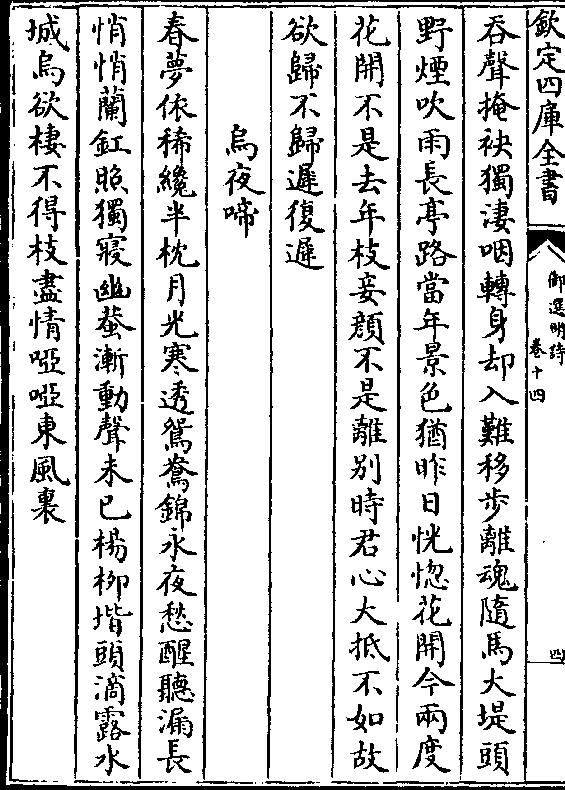 欽定四庫全書
御選明詩
卷十四
四
吞聲掩袂獨淒咽轉身却入難移步離魂隨馬大堤頭
野煙吹雨長亭路當年景色猶昨日恍惚花開今兩度
花開不是去年枝妾顏不是離別時君心大抵不如故
欲歸不歸遲復遲
烏夜啼
春夢依稀纔半枕月光寒透鴛鴦錦永夜愁醒聽漏長
悄悄蘭釭照獨寢幽蛩漸動聲未已楊柳堦頭滴露水
城烏欲棲不得枝盡情啞啞東風裏